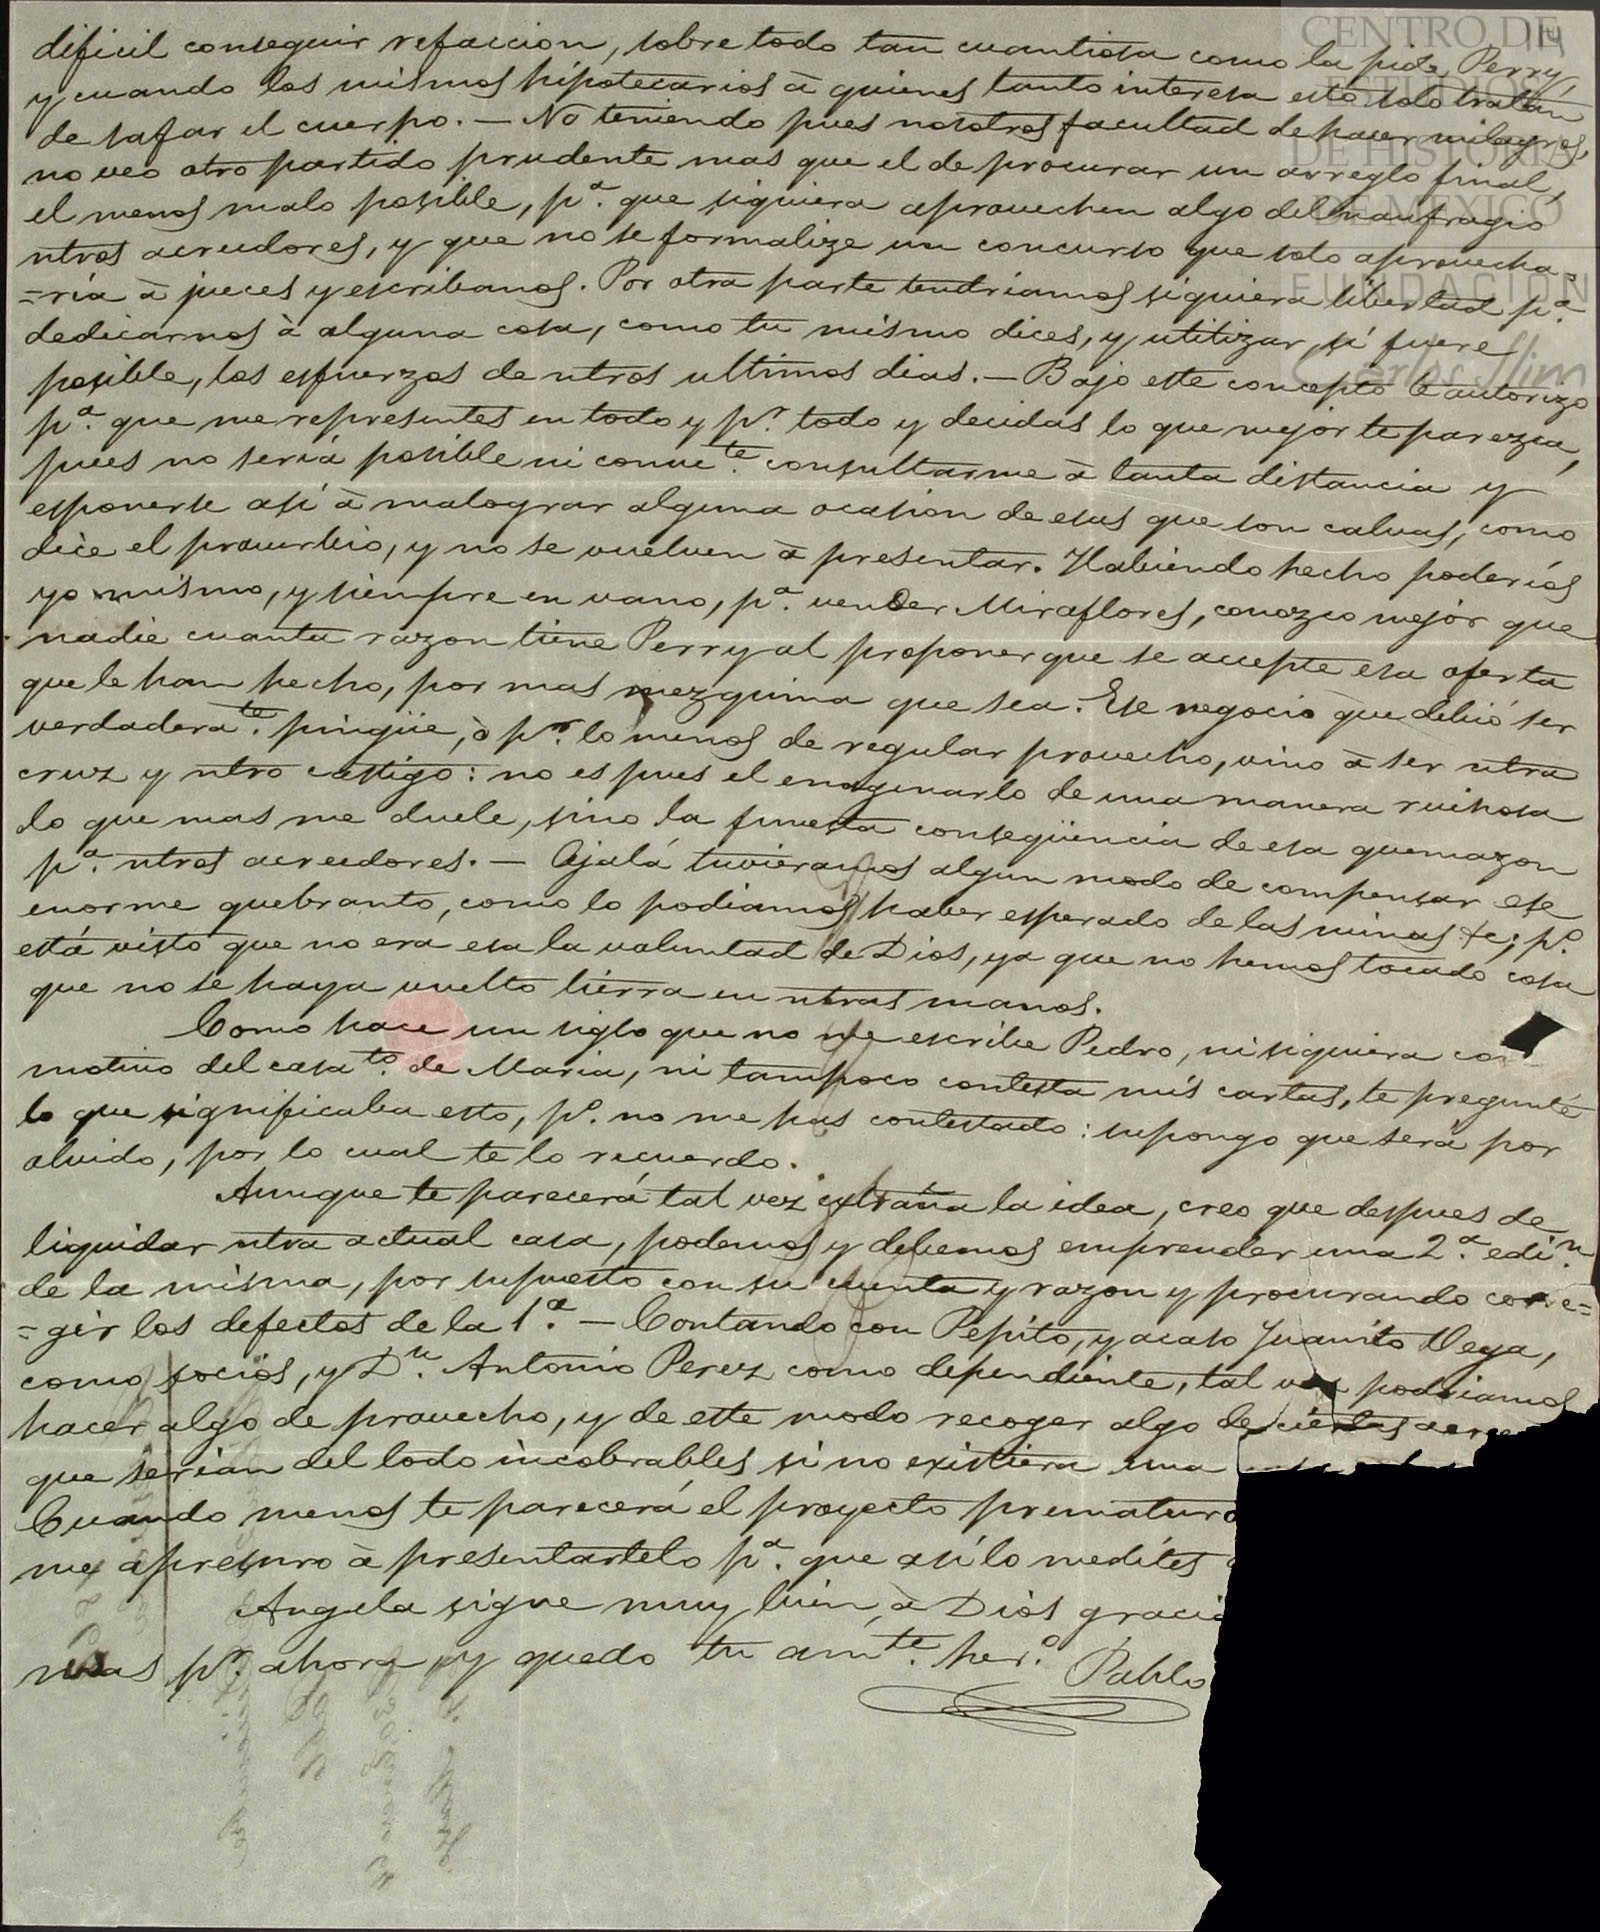 CENTRO DE
ESTUDIOS
DE HISTORIA
DE MEXICO
FUNDACIÓN
Carlos Slim
114
dificil conseguir refaccion, sobre todo tan cuantiosa como la pide Perry,
y cuando los mismos hipotecarios à quienes tanto interesa esto solo tratan
de safar el cuerpo. — No teniendo pues nosotros facultad de hacer milagros,
no veo otro partido prudente mas que el de procurar un arreglo final,
el menos malo posible, pª. que siquiera aprovechen algo del naufragio
ntros acreedores, y que no se formalize un concurso que solo aprovecha=
=ria à jueces y escribanos. Por otra parte tendriamos siquiera libertad pª.
dedicarnos à alguna cosa, como tu mismo dices, y utilizar, si fuere
posible, los esfuerzos de ntros ultimos dias. — Bajo este concepto te autorizo
pª. que me representes en todo y pr. todo y decidas lo que mejor te parezca,
pues no seria posible ni conve.te consultarme à tanta distancia y
esponerse asi à malograr alguna ocasion de esas que son calvas, como
dice el proverbio, y no se vuelven à presentar. Habiendo hecho poderios
yo mismo, y siempre en vano, pª. vender Miraflores, conozco mejor que
nadie cuanta razon tiene Perry al proponer que se accepte esa oferta
que le han hecho, por mas mezquina que sea. Ese negocio que debió ser
verdadera.te pingüe, ò pr. lo menos de regular provecho, vino à ser ntra
cruz y ntro castigo: no es pues el enagenarlo de una manera ruinosa
lo que mas me duele, sino la funesta conseqüencia de esa quemazon
pª. ntros acreedores. — Ojalá tuvieramos algun modo de compensar ese
enorme quebranto, como lo podiamos haber esperado de las minas &c; pº.
está visto que no era esa la voluntad de Dios, ya que no hemos tocado cosa
que no se haya vuelto tierra en ntras manos.
Como hace un siglo que no me escribe Pedro, ni siquiera con
motivo del casa.to de Maria, ni tampoco contesta mis cartas, te pregunté
lo que significaba esto, pº. no me has contestado: supongo que será por
olvido, por lo cual te lo recuerdo.
Aunque te parecerá tal vez extraña la idea, creo que despues de
liquidar ntra actual casa, podemos y debemos emprender una 2.ª edi.n
de la misma, por supuesto con su cuenta y razon y procurando corre=
=gir los defectos de la 1.ª — Contando con Pepito, y acaso Juanito Vega,
como socios, y Dn. Antonio Perez como dependiente, tal vez podriamos
hacer algo de provecho, y de este modo recoger algo de ciertas
que serian del todo incobrables si no existiera una
Cuando menos te parecerá el proyecto prematuro
me apresuro à presentartelo pª. que asi lo medites
Angela sigue muy bien, à Dios
mas pr. ahora, y quedo tu am.te her.º Pablo